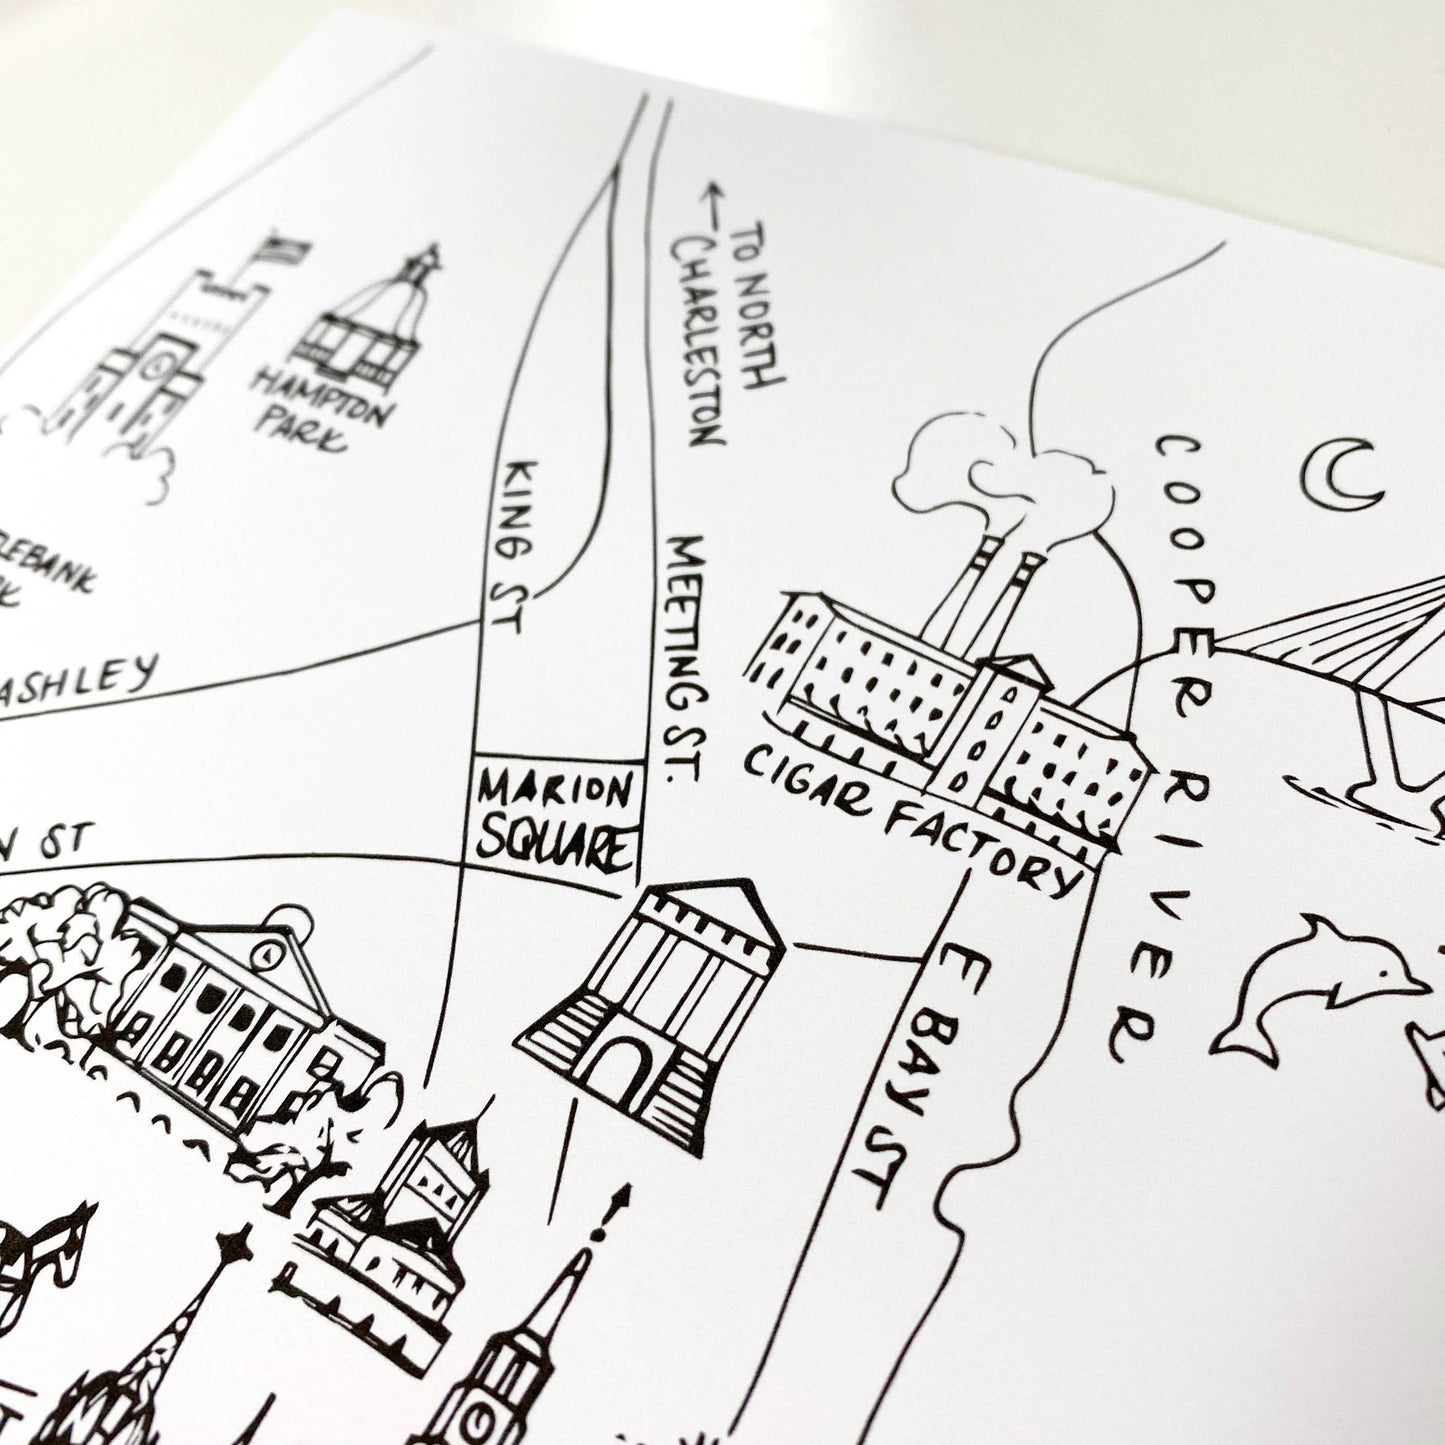 TO NORTH
CHARLESTON
HAMPTON
PARK
KING ST
MEETING ST.
COOPER RIVER
ASHLEY
MARION
SQUARE
CIGAR FACTORY
ST
E BAY ST